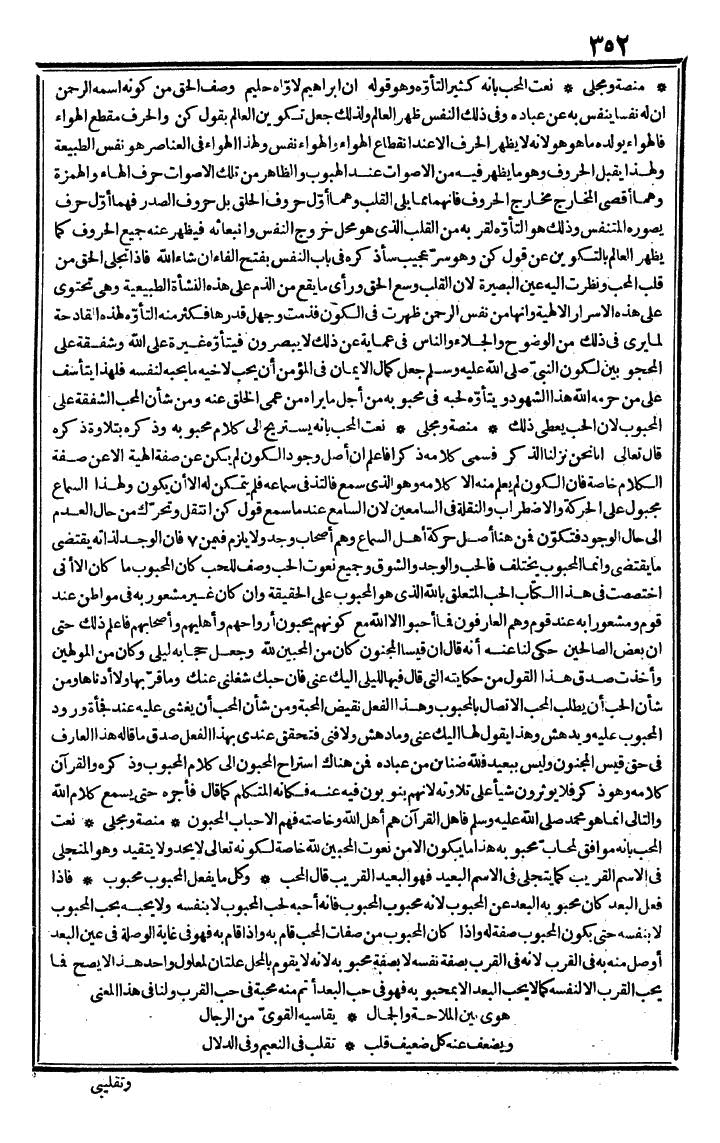 ٣٥٢
* منصة ومجلى * نعت المحب بانه كثير التأوّه وهو قوله ان ابراهيم لاوّاه حليم وصف الحق من كونه اسمه الرحمن
ان له نفسا ينفس به عن عباده وفى ذلك النفس ظهر العالم ولذلك جعل تكوين العالم بقول كن والحرف مقطع الهواء
فالهواء يولده ما هو هو لانه لا يظهر الحرف الا عند انقطاع الهواء والهواء نفس ولهذا الهواء فى العناصر هو نفس الطبيعة
ولهذا يقبل الحروف وهو ما يظهر فيه من الاصوات عند الهبوب والظاهر من تلك الاصوات حرف الهاء والهمزة
وهما أقصى المخارج مخارج الحروف فانهما مما يلى القلب وهما أوّل حروف الحلق بل حروف الصدر فهما أوّل حرف
يصوره المتنفس وذلك هو التأوّه لقربه من القلب الذى هو محل خروج النفس وانبعاثه فيظهر عنه جميع الحروف كما
يظهر العالم بالتكوين عن قول كن وهو سرّ عجيب سأذكره فى باب النفس بفتح الفاء ان شاء الله فاذا تجلى الحق من
قلب المحب ونظرت اليه عين البصيرة لان القلب وسع الحق ورأى ما يقع من الذم على هذه النشأة الطبيعية وهى تحتوى
على هذه الاسرار الالهية وانها من نفس الرحمن ظهرت فى الكون فذمت وجهل قدرها فكثر منه التأوّه لهذه القادحة
لما يرى فى ذلك من الوضوح والجلاء والناس فى عماية عن ذلك لا يبصرون فيتأوّه غيرة على الله وشفقة على
المحجوبين لكون النبىّ صلى الله عليه وسلم جعل كمال الايمان فى المؤمن أن يحب لاخيه ما يحبه لنفسه فلهذا يتأسف
على من حرمه الله هذا الشهود ويتأوّه لحبه فى محبوبه من أجل ما يراه من عمى الخلق عنه ومن شأن المحب الشفقة على
المحبوب لان الحب يعطى ذلك * منصة ومجلى * نعت المحب بانه يستريح الى كلام محبوبه وذكره بتلاوة ذكره
قال تعالى انا نحن نزلنا الذكر فسمى كلامه ذكرا فاعلم ان أصل وجود الكون لم يكن عن صفة الهية الا عن صفة
الكلام خاصة فان الكون لم يعلم منه الا كلامه وهو الذى سمع فالتذ فى سماعه فلم يتمكن له الا أن يكون ولهذا السماع
مجبول على الحركة والاضطراب والنقلة فى السامعين لان السامع عند ما سمع قول كن انتقل وتحرّك من حال العدم
الى حال الوجود فتكوّن فمن هنا أصل حركة أهل السماع وهم أصحاب وجد ولا يلزم فيمن ٧ فان الوجد لذاته يقتضى
ما يقتضى وانما المحبوب يختلف فالحب والوجد والشوق وجميع نعوت الحب وصف للحب كان المحبوب ما كان الا أنى
اختصصت فى هذا الكتاب الحب المتعلق بالله الذى هو المحبوب على الحقيقة وان كان غير مشعور به فى مواطن عند
قوم ومشعورا به عند قوم وهم العارفون فما أحبوا الا الله مع كونهم يحبون أرواحهم وأهليهم وأصحابهم فاعلم ذلك حتى
ان بعض الصالحين حكى لنا عنه أنه قال ان قيسا المجنون كان من المحبين لله وجعل حجابه ليلى وكان من المولهين
وأخذت صدق هذا القول من حكايته التى قال فيها لليلى اليك عنى فان حبك شغلنى عنك وما قرّبها ولا أدناها ومن
شأن الحب أن يطلب المحب الاتصال بالمحبوب وهذا الفعل نقيض المحبة ومن شأن المحب أن يغشى عليه عند فجأة ورود
المحبوب عليه ويدهش وهذا يقول لها اليك عنى وما دهش ولا فنى فتحقق عندى بهذا الفعل صدق ما قاله هذا العارف
فى حق قيس المجنون وليس ببعيد فلله ضنائن من عباده فمن هناك استراح المحبون الى كلام المحبوب وذكره والقرآن
كلامه وهو ذكر فلا يوثرون شيأ على تلاوته لانهم ينوبون فيه عنه فكانه المتكلم كما قال فأجره حتى يسمع كلام الله
والتالى انما هو محمد صلى الله عليه وسلم فاهل القرآن هم أهل الله وخاصته فهم الاحباب المحبون * منصة ومجلى * نعت
المحب بانه موافق لمحابّ محبوبه هذا ما يكون الا من نعوت المحبين لله خاصة لكونه تعالى لا يحد ولا يتقيد وهو المتجلى
فى الاسم القريب كما يتجلى فى الاسم البعيد فهو البعيد القريب قال المحب * وكل ما يفعل المحبوب محبوب * فاذا
فعل البعد كان محبوبه البعد عن المحبوب لانه محبوب المحبوب فانه أحبه لحب المحبوب لا بنفسه ولا يحبه بحب المحبوب
لا بنفسه حتى يكون المحبوب صفة له واذا كان المحبوب من صفات المحب قام به واذا قام به فهو فى غاية الوصلة فى عين البعد
أوصل منه به فى القرب لانه فى القرب بصفة نفسه لا بصفة محبوبه لانه لا يقوم بالمحل علتان لمعلول واحد هذا لا يصح فما
يحب القرب الا لنفسه كما لا يحب البعد الا بمحبوبه فهو فى حب البعد أتم منه محبة فى حب القرب ولنا فى هذا المعنى
هوى بين الملاحة والجمال * يقاسيه القوىّ من الرجال
ويضعف عنه كل ضعيف قلب * تقلب فى النعيم وفى الدلال
وتقليبى